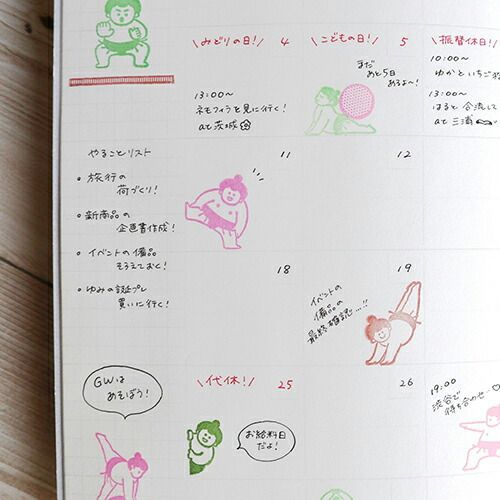 \みどりの日!/ 4
\こどもの日!/ 5
\振替休日!/
13:00〜
ネモフィラを見に行く!
at 茨城
まだ
あと5日
あるよ〜!
10:00〜
ゆかといちご狩
13:00〜
はると合流して
at 三浦
やることリスト
・旅行の
荷づくり!
・新商品の
企画書作成!
・イベントの備品
そろえておく!
・ゆみの誕プレ
買いに行く!
11
12
18
19
イベントの
備品の
最終確認…!!
GWは
あそぼう!
\代休!/ 25
お給料日
だよ!
26
19:00
渋谷で
待ち合わせ〜♡